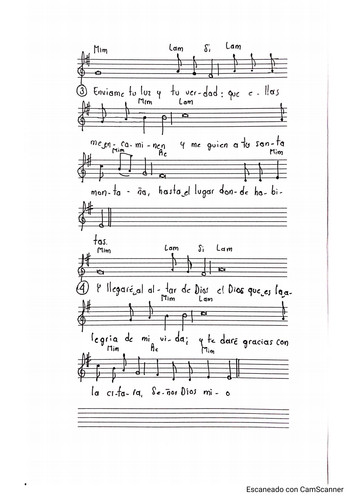 Mim Lam Si Lam
③ Envíame tu luz y tu ver-dad: que e-llas
Mim Lam
me_en-ca-mi-nen y me guíen a tu san-ta
Mim Re Mim
mon-ta-ña, hasta_el lugar don-de ha-bi-
tas.
Mim Lam Si Lam
④ Y llegaré_al al-tar de Dios el Dios que_es la_a-
Mim Lam
legría de mi vi-da; y te daré gracias con
Mim Re Mim
la cí-tara, Se-ñor Dios mí-o
Escaneado con CamScanner